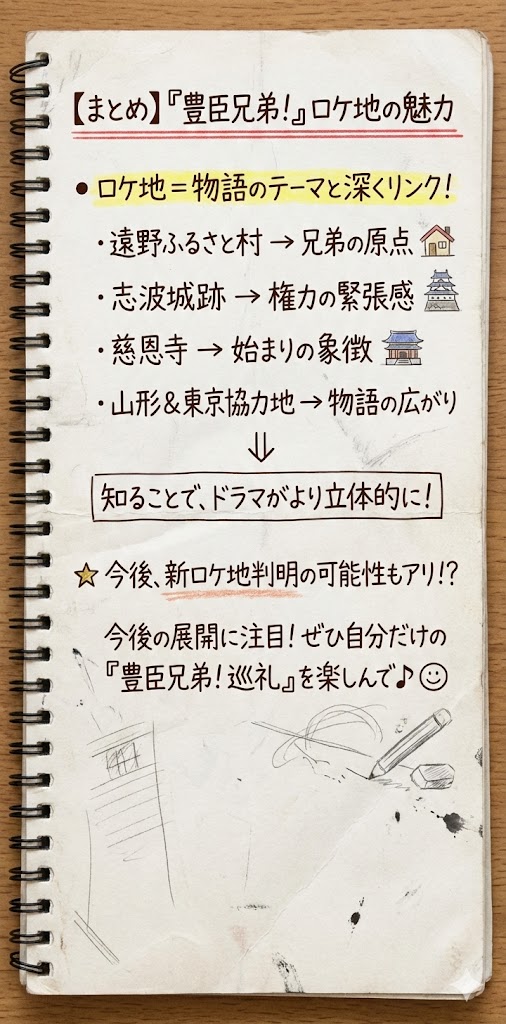 【まとめ】『豊臣兄弟！』ロケ地の魅力
• ロケ地＝物語のテーマと深くリンク！
・遠野ふるさと村 → 兄弟の原点
・志波城跡 → 権力の緊張感
・慈恩寺 → 始まりの象徴
・山形＆東京協力地 → 物語の広がり
⇓
知ることで、ドラマがより立体的に！
☆ 今後、新ロケ地判明の可能性もアリ!?
今後の展開に注目！ぜひ自分だけの
『豊臣兄弟！巡礼』を楽しんで♪☺